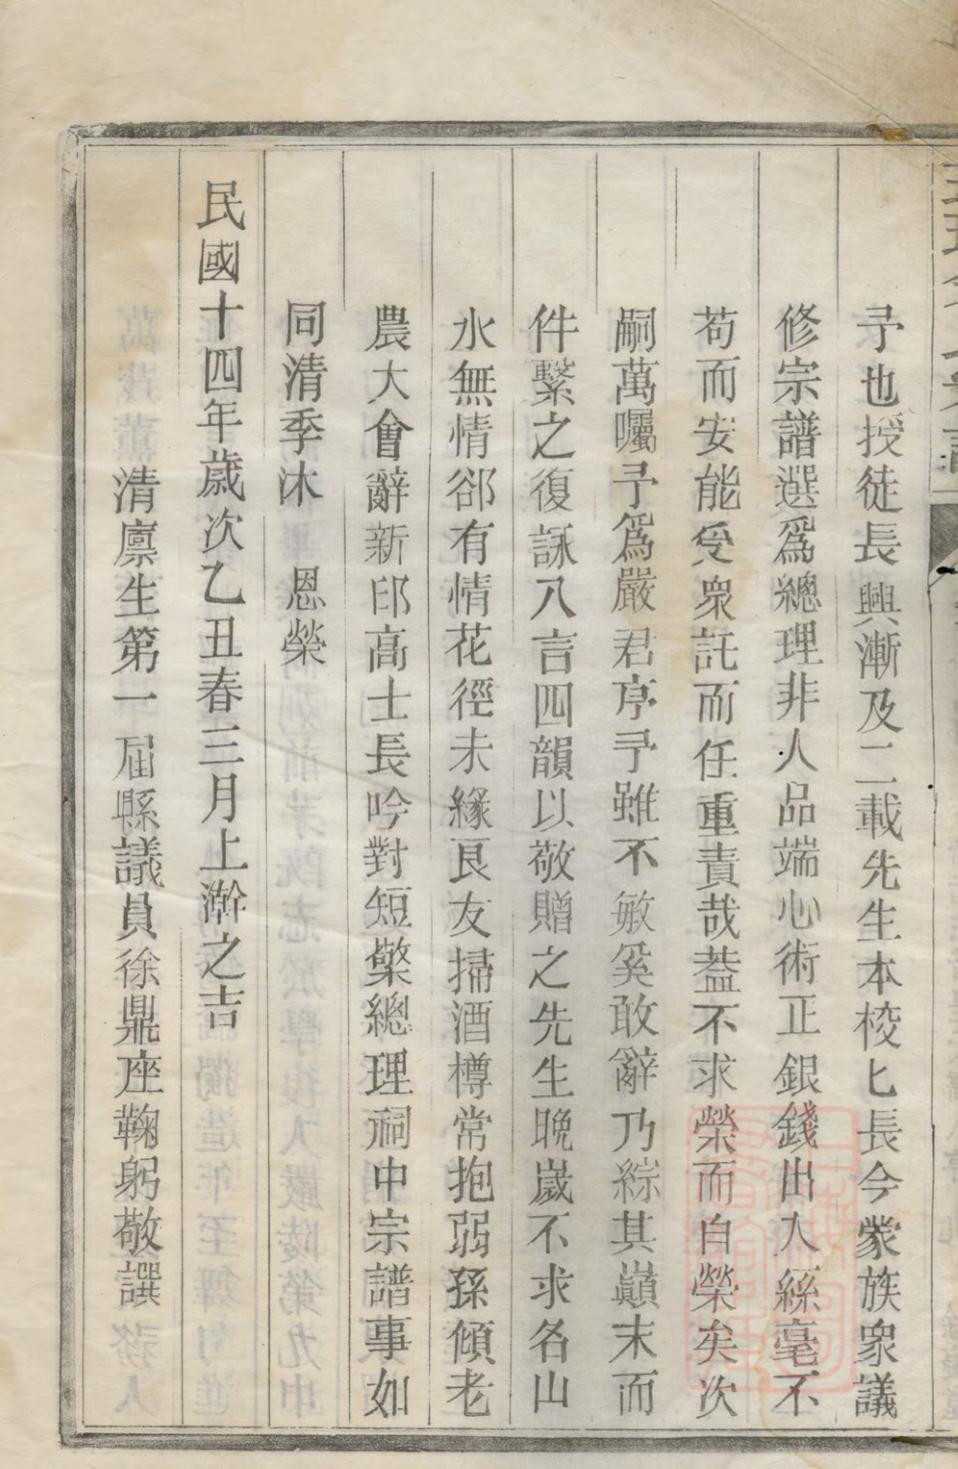 予也授徒長興漸及二載先生本校匕長今蒙族衆議
修宗譜選爲總理非人品端心術正銀錢出入絲毫不
苟而安能受衆託而任重責哉葢不求榮而自榮矣次
嗣萬囑予爲嚴君序予雖不敏奚敢辭乃綜其巔末而
件繫之復詠八言四韻以敬贈之先生晚嵗不求名山
水無情郤有情花徑未緣良友掃酒樽常抱弱孫傾老
農大會辭新邱高士長吟對短檠總理祠中宗譜事如
同清季沐 恩榮
民國十四年歲次乙丑春三月上澣之吉
清廩生第一屆縣議員徐鼎座鞠躬敬譔